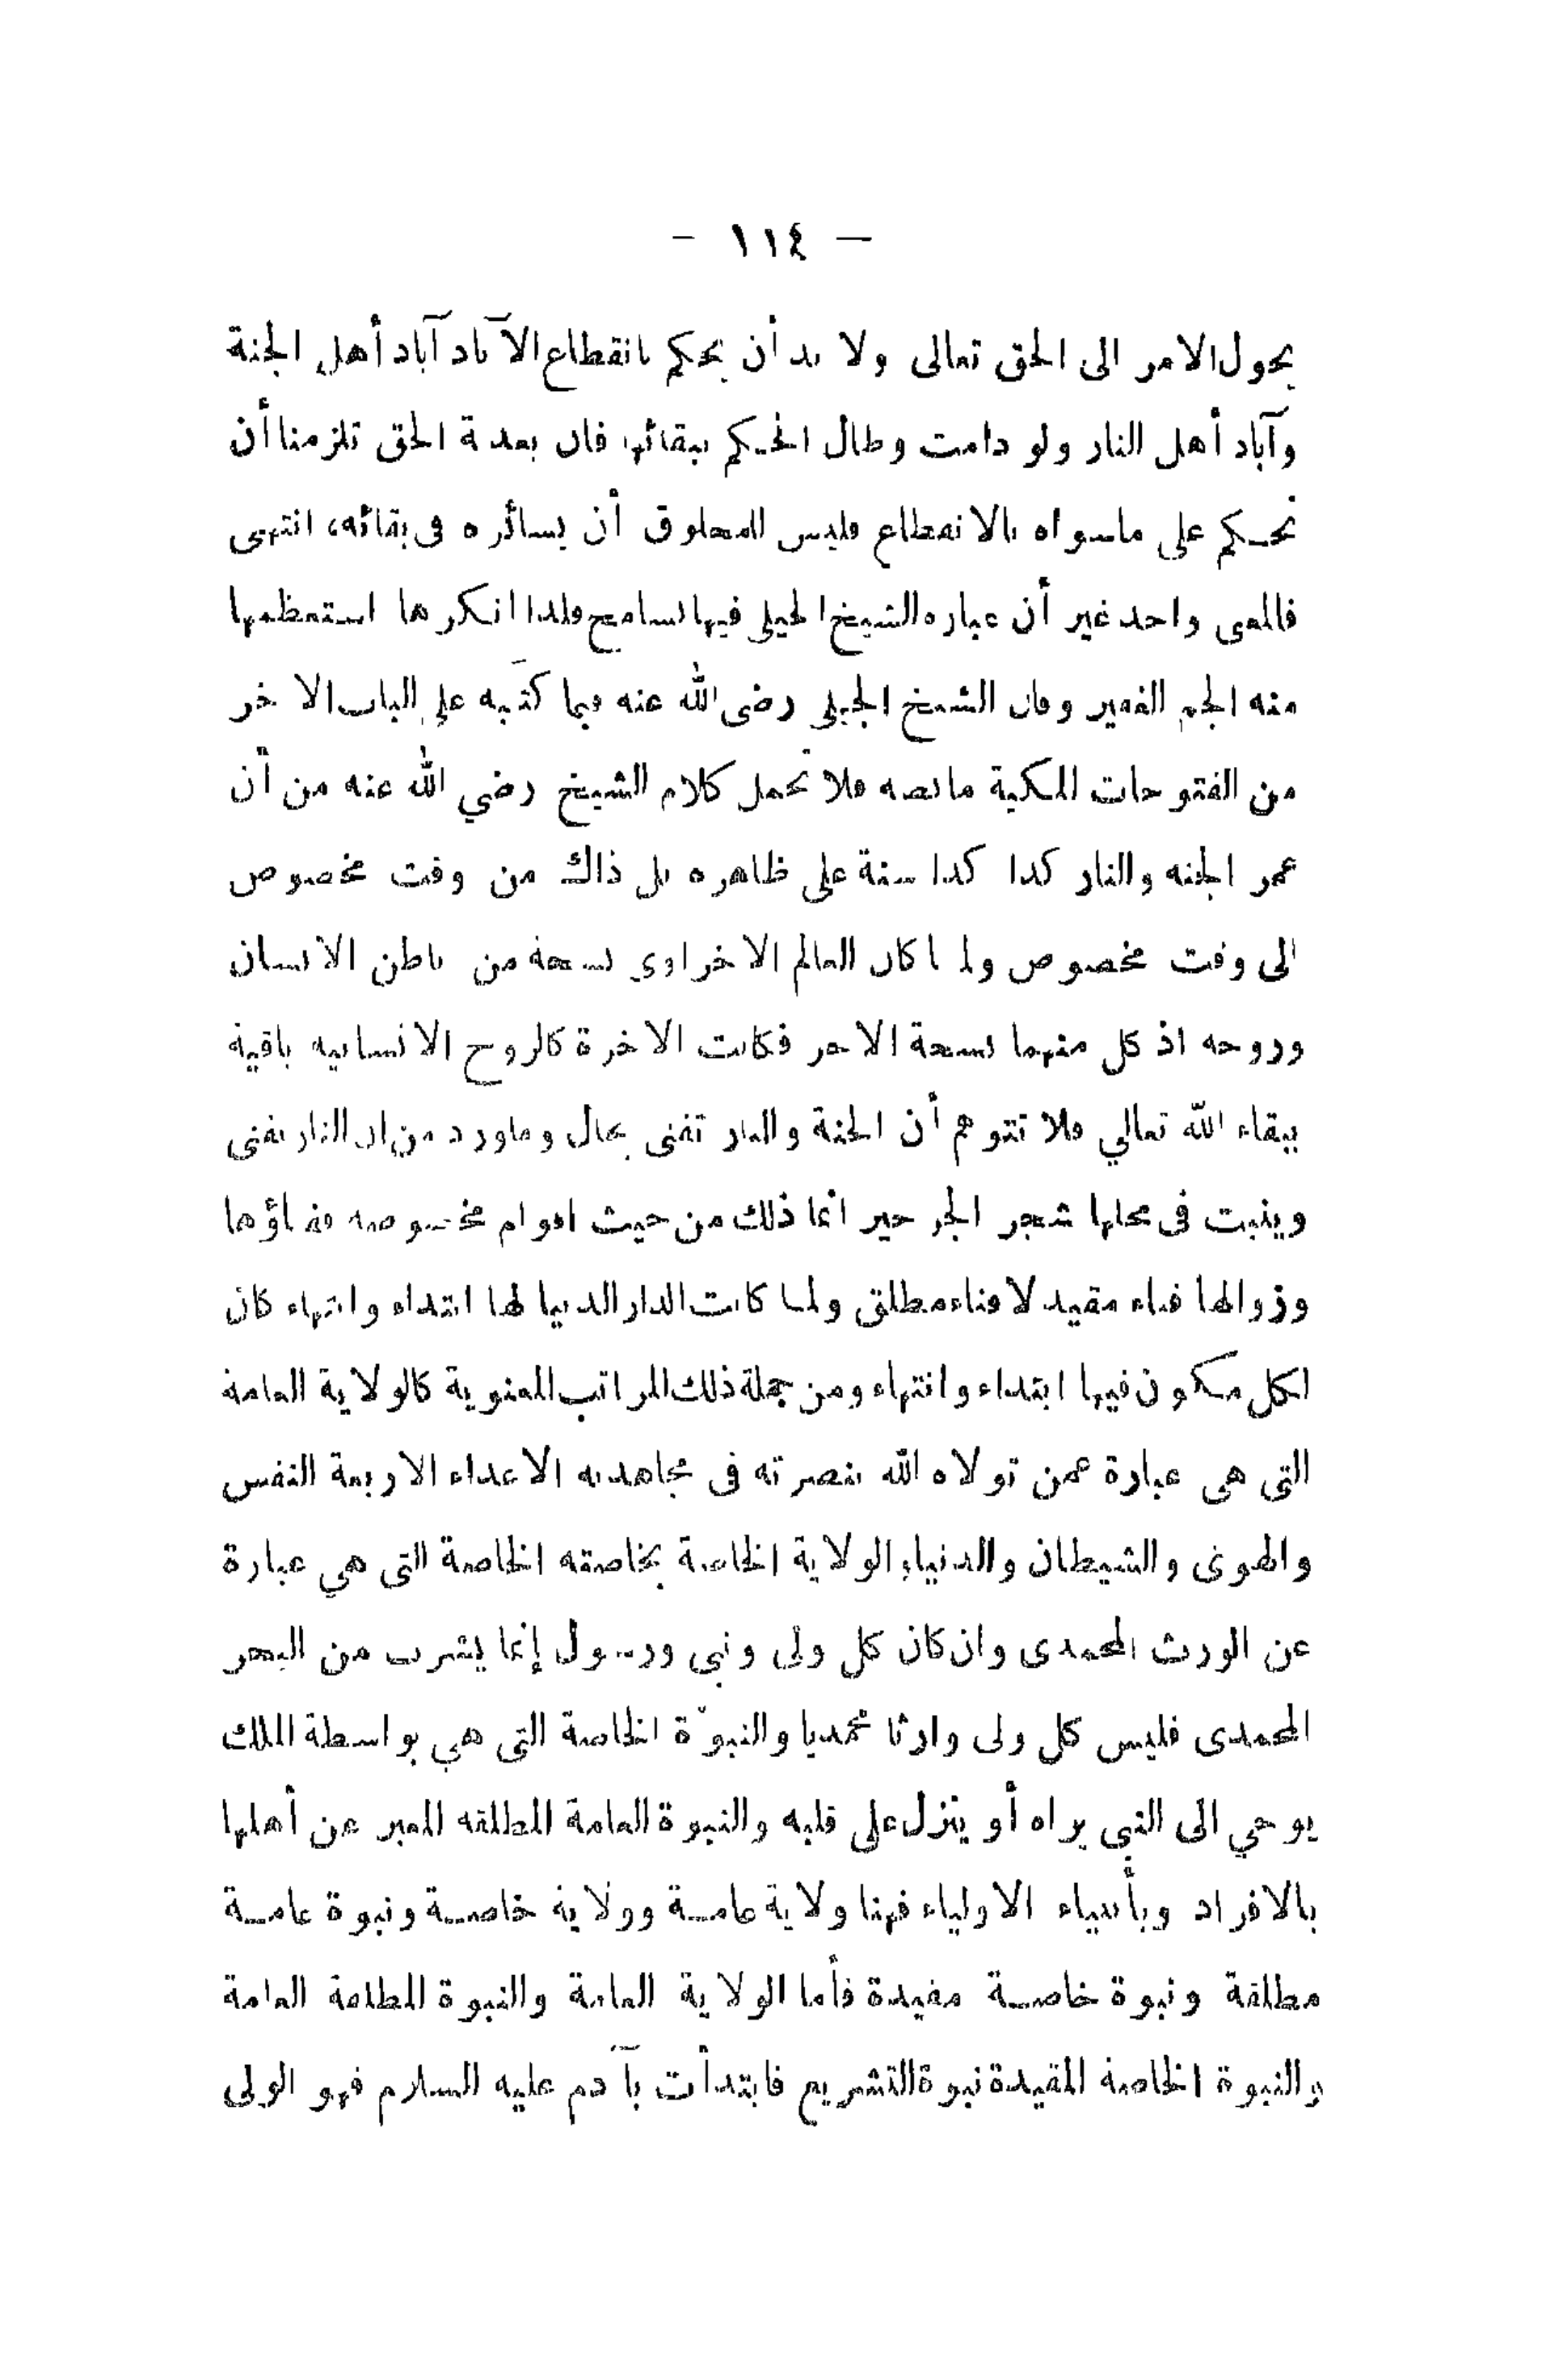 — ١١٤ —
يحول الامر الى الحق تعالى ولا بد أن يحكم بانقطاع الآباد آباد أهل الجنة
وآباد أهل النار ولو دامت وطال الحكم ببقائها فان بعدية الحق تلزمنا أن
نحكم على ماسواه بالانقطاع فليس للمخلوق أن يسائره فى بقائه، انتهى
فالمعنى واحد غير أن عبارة الشيخ الجيلى فيها تسامح فلذا انكرها استعظمها
منه الجم الغفير وقال الشيخ الجيلى رضى الله عنه فيما كتبه على الباب الآخر
من الفتوحات المكية مانصه فلا تحمل كلام الشيخ رضي الله عنه من أن
عمر الجنة والنار كذا كذا سنة على ظاهره بل ذاك من وقت مخصوص
الى وقت مخصوص ولما كان العالم الاخراوى نسخة من باطن الانسان
وروحه اذ كل منهما نسخة الآخر فكانت الآخرة كالروح الانسانية باقية
ببقاء الله تعالي فلا تتوهم أن الجنة والنار تفنى بحال وما ورد من ان النار تفنى
وينبت فى محلها شجر الجرجير انما ذلك من حيث اقوام مخصوصة ففناؤها
وزوالها فناء مقيد لا فناء مطلق ولما كانت الدار الدنيا لها ابتداء وانتهاء كان
لكل مكون فيها ابتداء وانتهاء ومن جملة ذلك المراتب المعنوية كالولاية العامة
التى هى عبارة عمن تولاه الله بنصرته فى مجاهدته الاعداء الاربعة النفس
والهوى والشيطان والدنيا، الولاية الخاصة بخاصته الخاصة التى هي عبارة
عن الورث المحمدى وان كان كل ولى ونبى ورسول إنما يشرب من البحر
المحمدى فليس كل ولى وارثا محمديا والنبوّة الخاصة التى هي بواسطة الملك
يوحي الى النبي يراه أو ينزل على قلبه والنبوة العامة المطلقة المعبر عن أهلها
بالافراد وبأنبياء الاولياء فهنا ولاية عامة وولاية خاصة ونبوة عامة
مطلقة ونبوة خاصة مقيدة فأما الولاية العامة والنبوة المطلقة العامة
والنبوة الخاصة المقيدة نبوة التشريع فابتدأت بآدم عليه السلام فهو الولى